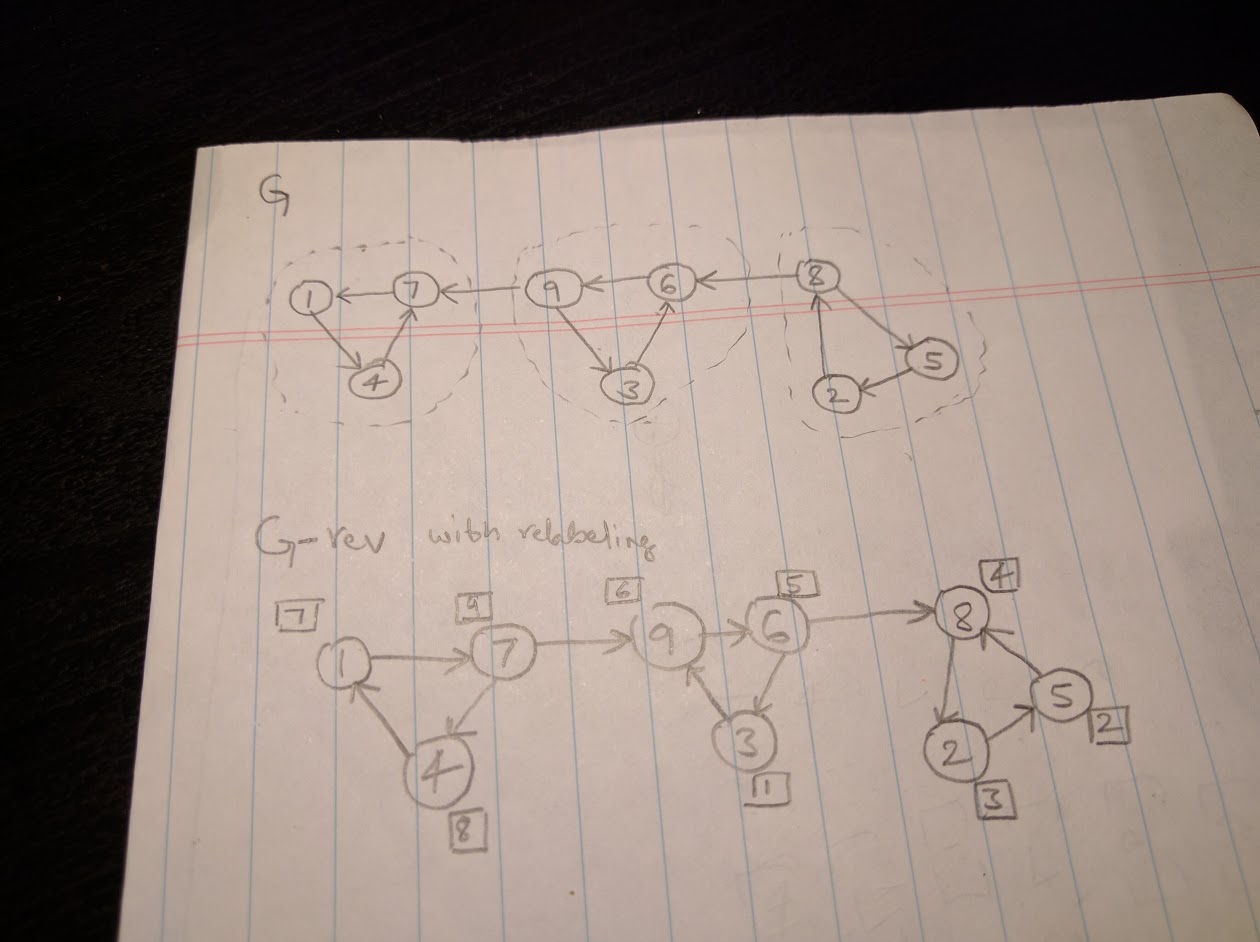 G
1 7 9 6 8
4 3 2 5
G-rev with relabeling
7 9 6 5 4
1 7 9 6 8
4 3 2 5 2
8 1 3